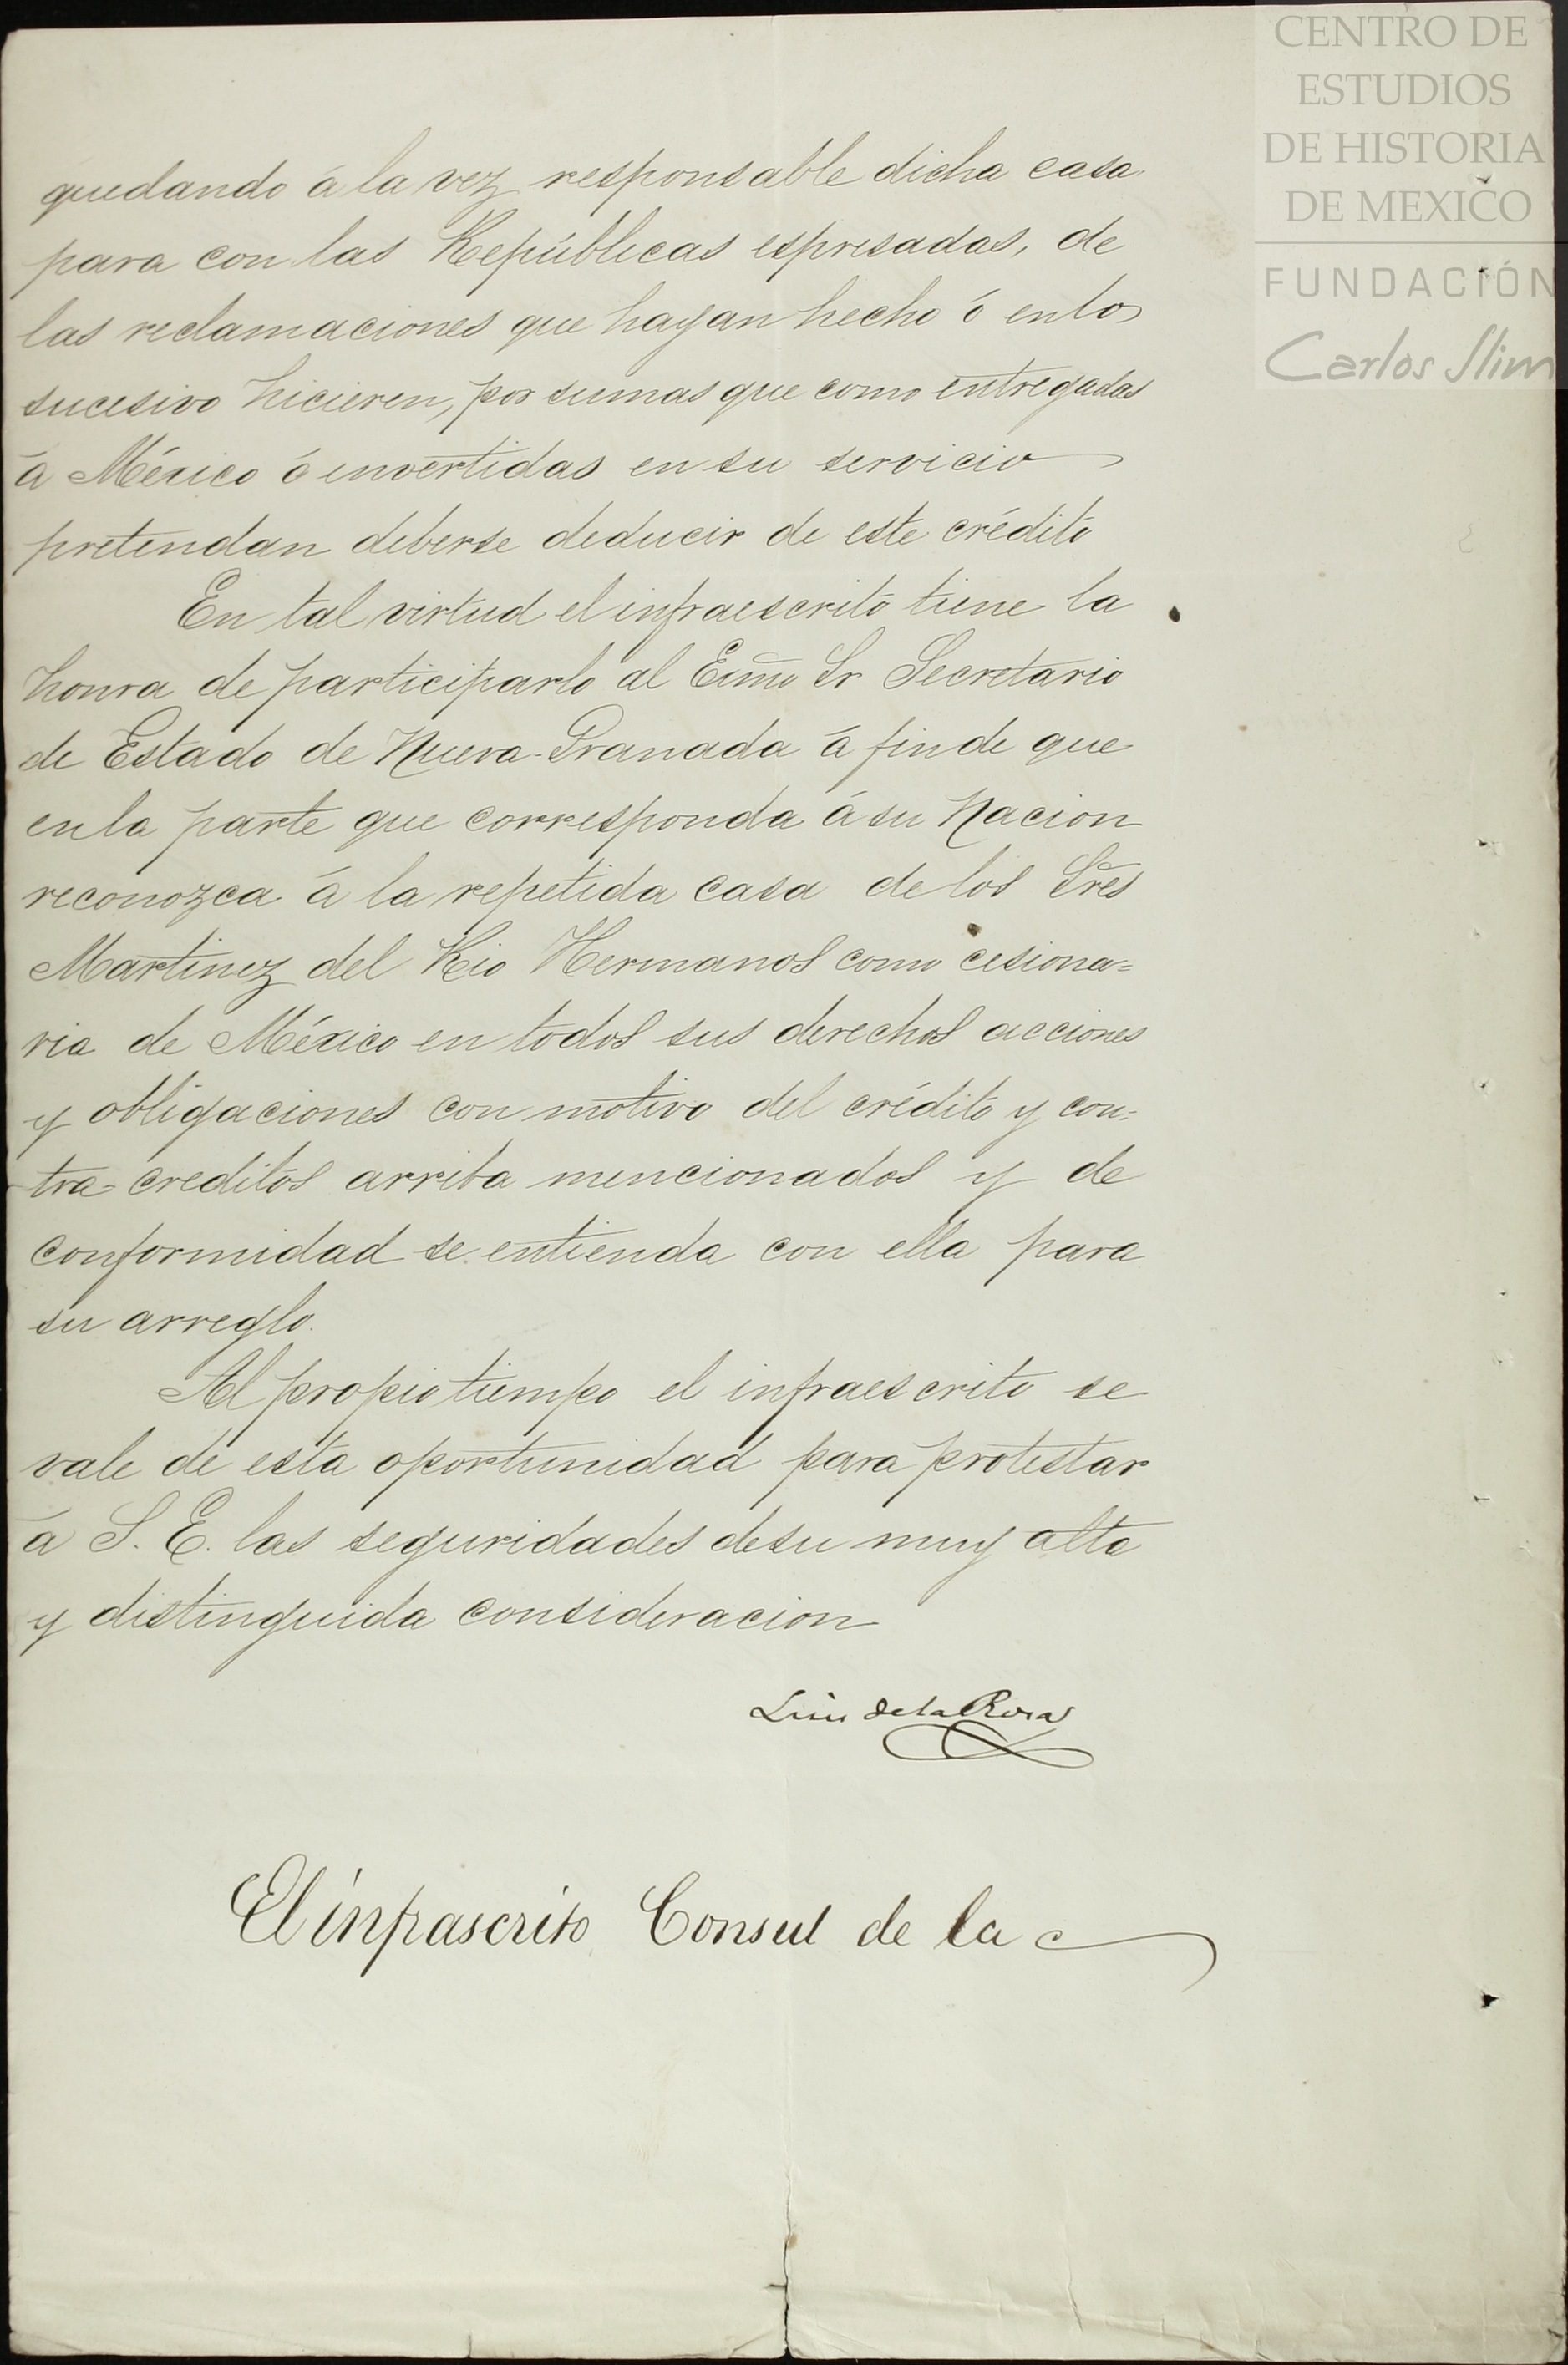 CENTRO DE
ESTUDIOS
DE HISTORIA
DE MEXICO
FUNDACIÓN
Carlos Slim
quedando á la vez responsable dicha casa
para con las Repúblicas espresadas, de
las reclamaciones que hayan hecho ó en lo
sucesivo hicieren, por sumas que como entregadas
á México ó invertidas en su servicio
pretendan deberse deducir de este crédito
En tal virtud el infraescrito tiene la
honra de participarlo al Exmo Sr Secretario
de Estado de Nueva-Granada á fin de que
en la parte que corresponda á su Nacion
reconozca á la repetida casa de los Sres
Martinez del Rio Hermanos como cesiona=
ria de México en todos sus derechos acciones
y obligaciones con motivo del crédito y con-
tra=creditos arriba mencionados y de
conformidad se entienda con ella para
su arreglo.
Al propio tiempo el infraescrito se
vale de esta oportunidad para protestar
á S. E. las seguridades de su muy alta
y distinguida consideracion
Luis de la Rosa
El infrascrito Consul de la